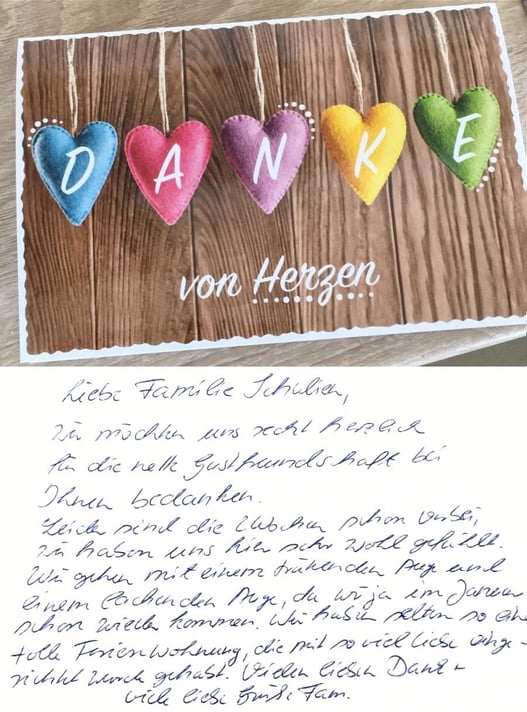 DANKE
von Herzen
Liebe Familie Schulien,
wir möchten uns recht herzlich
für die nette Gastfreundschaft bei
Ihnen bedanken.
Leider sind die 2 Wochen schon vorbei,
wir haben uns hier sehr wohl gefühlt.
Wir gehen mit einem tränenden Auge und
einem lachenden Auge, da wir ja im Januar
schon wieder kommen. Wir haben selten so eine
tolle Ferienwohnung, die mit so viel Liebe einge-
richtet wurde gehabt. Vielen lieben Dank -
viele liebe Grüße Fam.